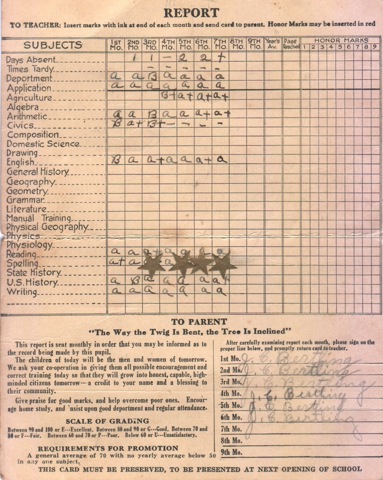 REPORT
TO TEACHER: Insert marks with ink at end of each month and send card to parent. Honor Marks may be inserted in red
SUBJECTS 1ST Mo. 2ND Mo. 3RD Mo. 4TH Mo. 5TH Mo. 6TH Mo. 7TH Mo. 8TH Mo. 9TH Mo. Year's Av. Page Reached HONOR MARKS 1 2 3 4 5 6 7 8 9
Days Absent 1 1 - 2 2 +
Times Tardy - - - - -
Department a a B a a a a
Application a a a a a a a
Agriculture B+ a+ a+ a+
Algebra
Arithmetic a a B a a a+ a+
Civics B a+ B+ - - - -
Composition
Domestic Science
Drawing
English B a a+ a a a+ a
General History
Geography
Geometry
Grammar
Literature
Manual Training
Physical Geography
Physics
Physiology
Reading a a a+ a a a a
Spelling a+ a
State History
U.S. History a B a a a a+
Writing a a a a a a
TO PARENT
"The Way the Twig Is Bent, the Tree Is Inclined"
This report is sent monthly in order that you may be informed as to
the record being made by this pupil.
The children of today will be the men and women of tomorrow.
We ask your co-operation in giving them all possible encouragement and
correct training today so that they will grow into honest, capable, high-
minded citizens tomorrow—a credit to your name and a blessing to
their community.
Give praise for good marks, and help overcome poor ones. Encour-
age home study, and insist upon good deportment and regular attendance.
SCALE OF GRADING
Between 90 and 100 or E—Excellent. Between 80 and 90 or G—Good. Between 70 and
80 or F—Fair. Between 60 and 70 or P—Poor. Below 60 or U—Unsatisfactory.
REQUIREMENTS FOR PROMOTION
A general average of 70 with no yearly average below 50
in any one subject.
After carefully examining report each month, please sign on the
proper line below, and promptly return card to teacher.
1st Mo. J. E. Bertling
2nd Mo. J. E. Bertling
3rd Mo. J. E. Bertling
4th Mo. J. E. Bertling
5th Mo. J. E. Bertling
6th Mo. J. E. Bertling
7th Mo.
8th Mo.
9th Mo.
THIS CARD MUST BE PRESERVED, TO BE PRESENTED AT NEXT OPENING OF SCHOOL